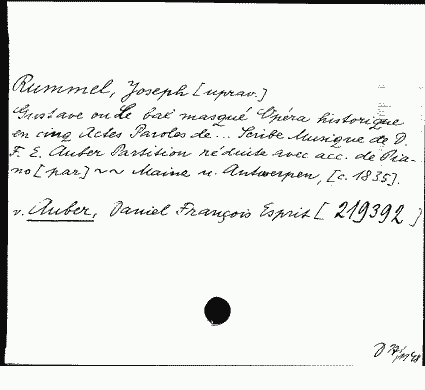 Rummel, Joseph [uprav.]
Gustave ou le bal masqué Opéra historique
en cinq Actes Paroles de ... Scribe Musique de D.
F. E. Auber Partition réduite avec acc. de Pia-
no [par] ~~ Mainz u. Antwerpen, [c. 1835].
v. Auber, Daniel François Esprit [219392]